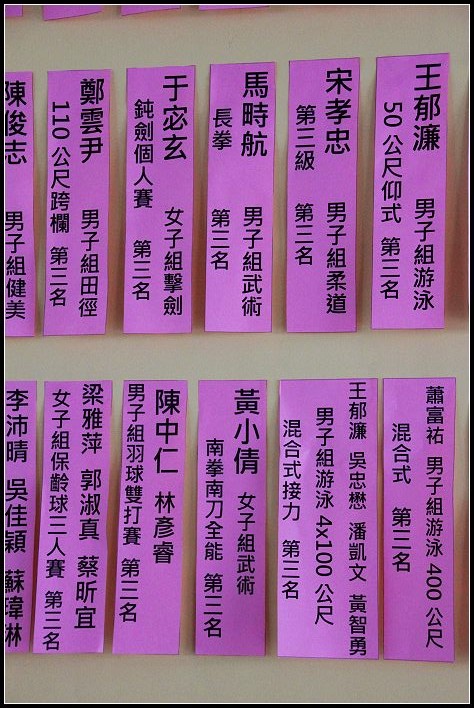 王郁濂 男子組游泳
50公尺仰式 第三名
宋孝忠 男子組柔道
第三級 第三名
馬畤航 男子組武術
長拳 第三名
于宓玄 女子組擊劍
鈍劍個人賽 第三名
鄭雲尹 男子組田徑
110公尺跨欄 第三名
陳俊志 男子組健美
蕭富祐 男子組游泳400公尺
混合式 第三名
王郁濂 吳忠懋 潘凱文 黃智勇
男子組游泳4x100公尺
混合式接力 第三名
黃小倩 女子組武術
南拳南刀全能 第三名
陳中仁 林彥睿
男子組羽球雙打賽 第三名
梁雅萍 郭淑真 蔡昕宜
女子組保齡球三人賽 第三名
李沛晴 吳佳穎 蘇瑋琳